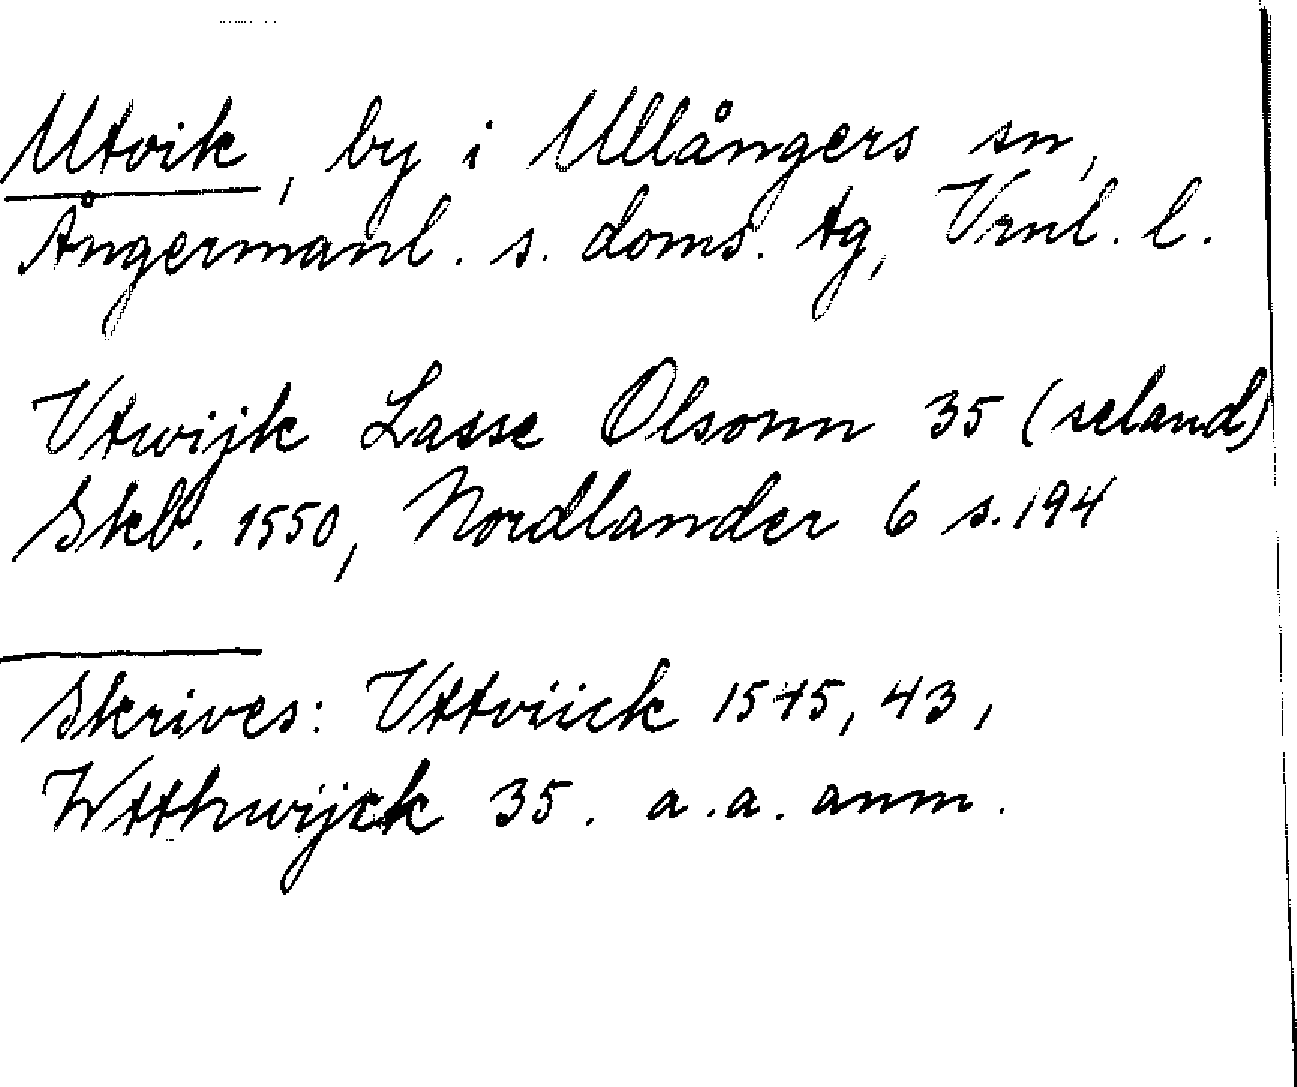 Utvik, by i Ullångers sn,
Ångermanl. s. doms. tg, Vrnl. l.
Vtwijk Lasse Olsonn 35 (seland)
Skb. 1550, Nordlander 6 s. 194
Skrives: Vttviick 1545, 43,
Wtthwijck 35. a. a. anm.